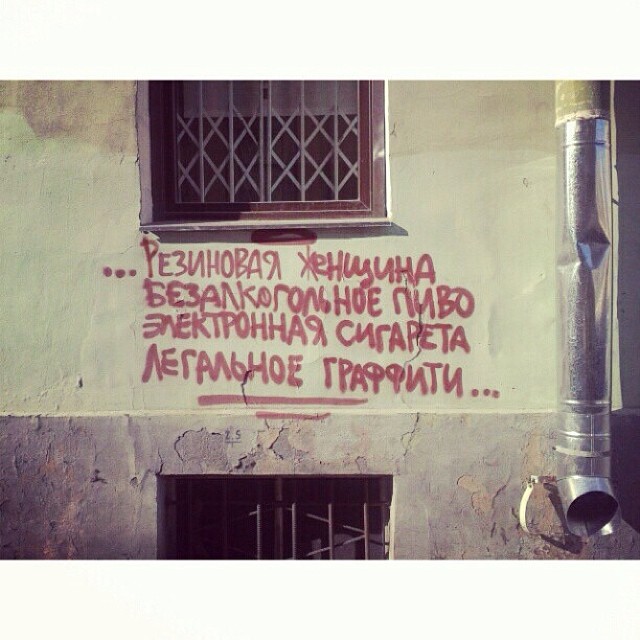 ...РЕЗИНОВАЯ ЖЕНЩИНА
БЕЗАЛКОГОЛЬНОЕ ПИВО
ЭЛЕКТРОННАЯ СИГАРЕТА
ЛЕГАЛЬНОЕ ГРАФФИТИ...
2.5